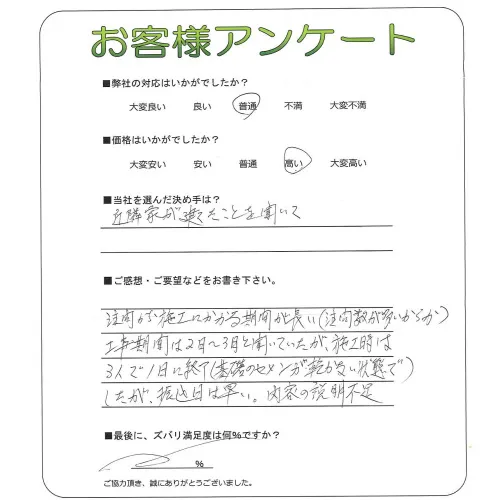 お客様アンケート
■弊社の対応はいかがでしたか?
大変良い 良い 普通 不満 大変不満
■価格はいかがでしたか?
大変安い 安い 普通 高い 大変高い
■当社を選んだ決め手は?
近隣家が たことを聞いて
■ご感想・ご要望などをお書き下さい。
注文から施工にかかる期間が長い(注文数が多いからか)
工事期間は2日〜3日と聞いていたが、施工時は
3人で1日に終了(基礎のセメンが乾かない状態で)
したが、振込日は早い。内容の説明不足
■最後に、ズバリ満足度は何%ですか?
%
ご協力頂き、誠にありがとうございました。